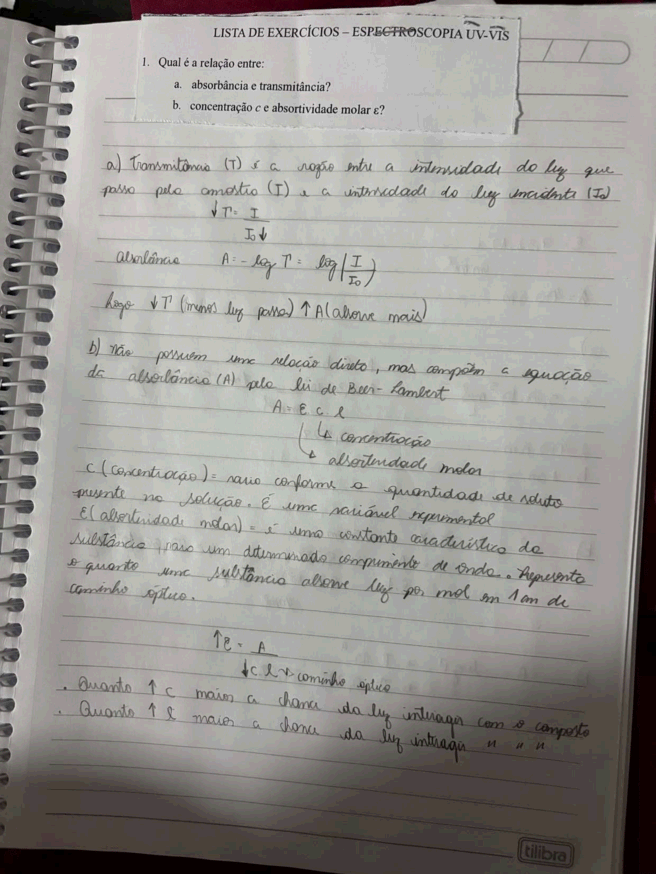 LISTA DE EXERCÍCIOS – ESPECTROSCOPIA UV-VIS
1. Qual é a relação entre:
a. absorbância e transmitância?
b. concentração c e absortividade molar ε?
a) Transmitância (T) é a razão entre a intensidade da luz que
passa pela amostra (I) e a intensidade da luz incidente (I₀)
↓T = I
I₀↓
absorbância A = - log T = log(I/I₀)
Logo ↓T (menos luz passa) ↑A (absorve mais)
b) Não possuem uma relação direta, mas compõem a equação
da absorbância (A) pela lei de Beer-Lambert
A = ε c l
↳ concentração
↳ absortividade molar
C (concentração) = varia conforme a quantidade de soluto
presente na solução. É uma variável experimental
ε (absortividade molar) = é uma constante característica da
substância para um determinado comprimento de onda. Representa
o quanto uma substância absorve luz por mol em 1cm de
caminho óptico.
↑ε = A
↓c l → caminho óptico
. Quanto ↑ c maior a chance da luz interagir com o composto
. Quanto ↑ l maior a chance da luz interagir " " "
tilibra